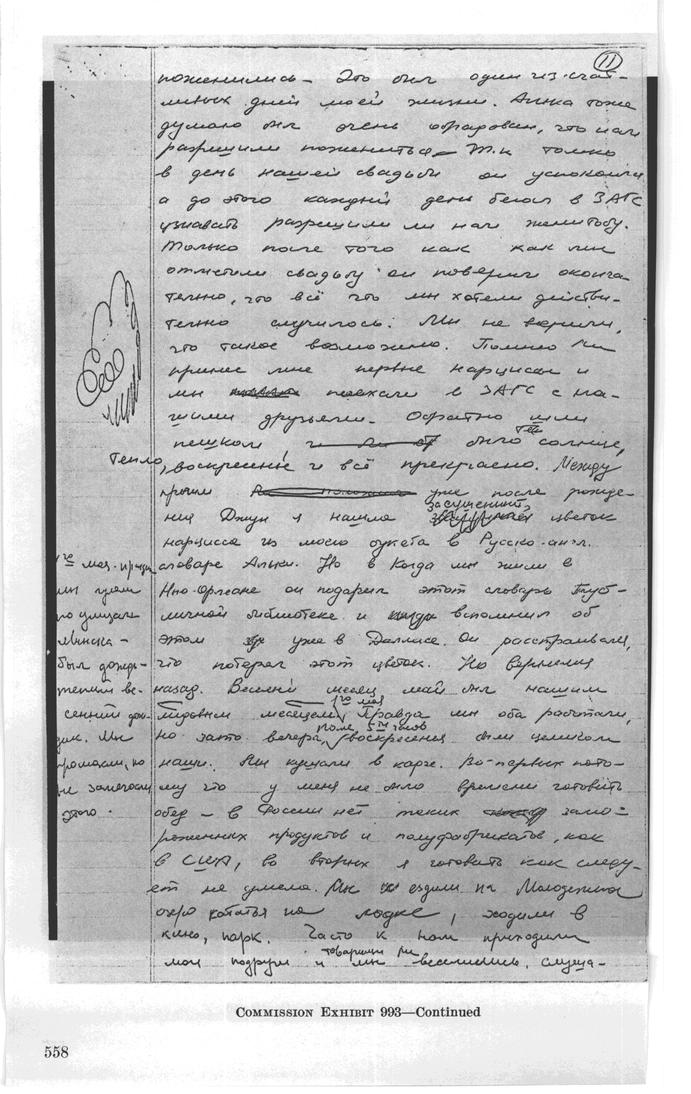 11
поженились — Это был один из счаст-
ливых дней моей жизни. Алька тоже
думаю был очень обрадован, что нам
разрешили пожениться — Т.к только
в день нашей свадьбы он успокоился
а до этого каждый день бегал в ЗАГС
узнавать разрешили ли нам женитьбу.
Только после того как как мы
отметили свадьбу он поверил оконча-
тельно, что всё что мы хотели действи-
тельно случилось. Мы не верили,
что такое возможно. Помню он
принес мне первые нарциссы и
мы поехали в ЗАГС с на-
шими друзьями. Обратно шли
пешком было солнце,
тепло, воскресенье и всё прекрасно. Между
прочим уже после рожде-
ния Джун я нашла засушенный цветок
нарцисса из моего букета в Русско-англ.
словаре Альки. Но в Когда мы жили в
Нью-Орлеане он подарил этот словарь Пуб-
личной библиотеке и вспомнил об
этом уже в Далласе. Он расстраивался,
что потерял этот цветок. Но Вернемся
назад. Весенний месяц май был нашим
медовым месяцем. Правда мы оба работали,
но зато вечера после 5ти часов, воскресения были целиком
наши. Мы кушали в кафе. Во-первых пото-
му что у меня не было времени готовить
обед — в России нет таких замо-
роженных продуктов и полуфабрикатов, как
в США, во вторых я готовить как следу-
ет не умела. Мы ездили на Молодежное
озеро кататься на лодке, ходили в
кино, парк. Часто к нам приходили
мои подруги и товарищи мы веселились, слуша-
1го мая
мы гуляли
по улицам
Минска —
был дождь —
теплый ве-
сенний дож-
дик. Мы
промокли, но
не замечали
этого.
COMMISSION EXHIBIT 993—Continued
558